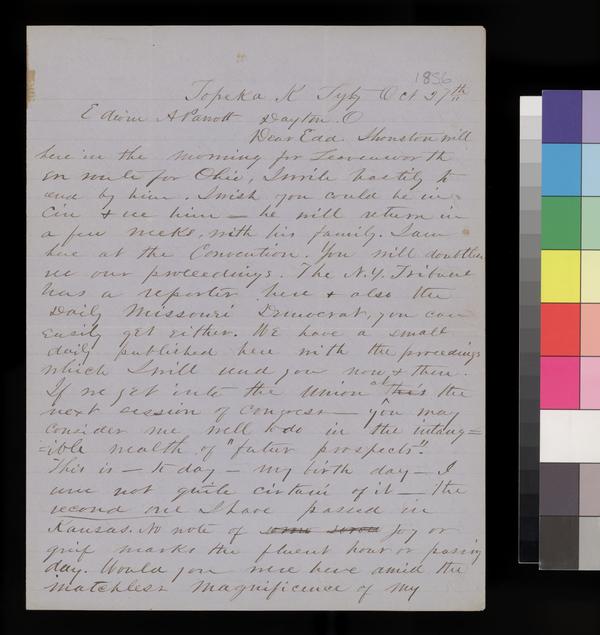 1856
Topeka K Ty Oct 27th
Edwin A Parrott Dayton. O
Dear Edd. Thonston will
leave in the morning for Leavenworth
en route for Ohio, I write hastily to
send by him. I wish you could be in
Cin & see him — he will return in
a few weeks, with his family. I am
here at the Convention. You will doubtless
see our proceedings. The N.Y. Tribune
has a reporter here & also the
Daily Missouri Democrat, you can
easily get either. We have a small
daily published here with the proceedings
which I will send you now & then.
If we get into the Union at this the
next session of Congress — you may
consider me well to do in the intang=
=ible wealth of "futur prospects".
This is — to day — my birth day — I
was not quite certain of it — the
second one I have passed in
Kansas. No note of some joy or
grief marks the fluent hour or passing
day. Would you were here amid the
matchless magnificence of my